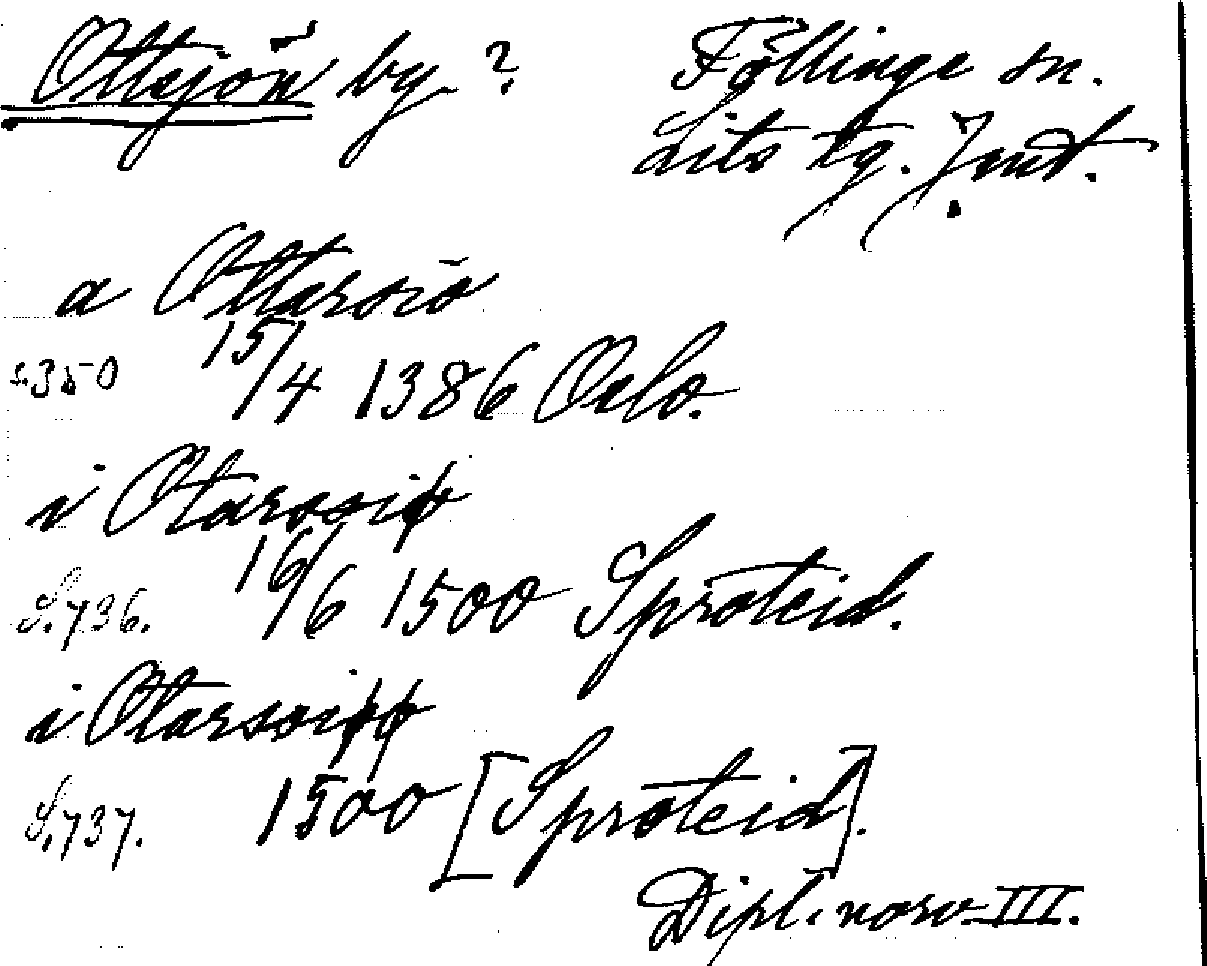 Ottsjön by? Föllinge sn.
Lits tg. Jmt.
a Ottarsiø
s.350 15/4 1386 Oslo.
i Otarssiø
S.736. 16/6 1500 Sproteid.
i Otarssiøø
S.737. 1500 [Sproteid].
Dipl. norv. III.